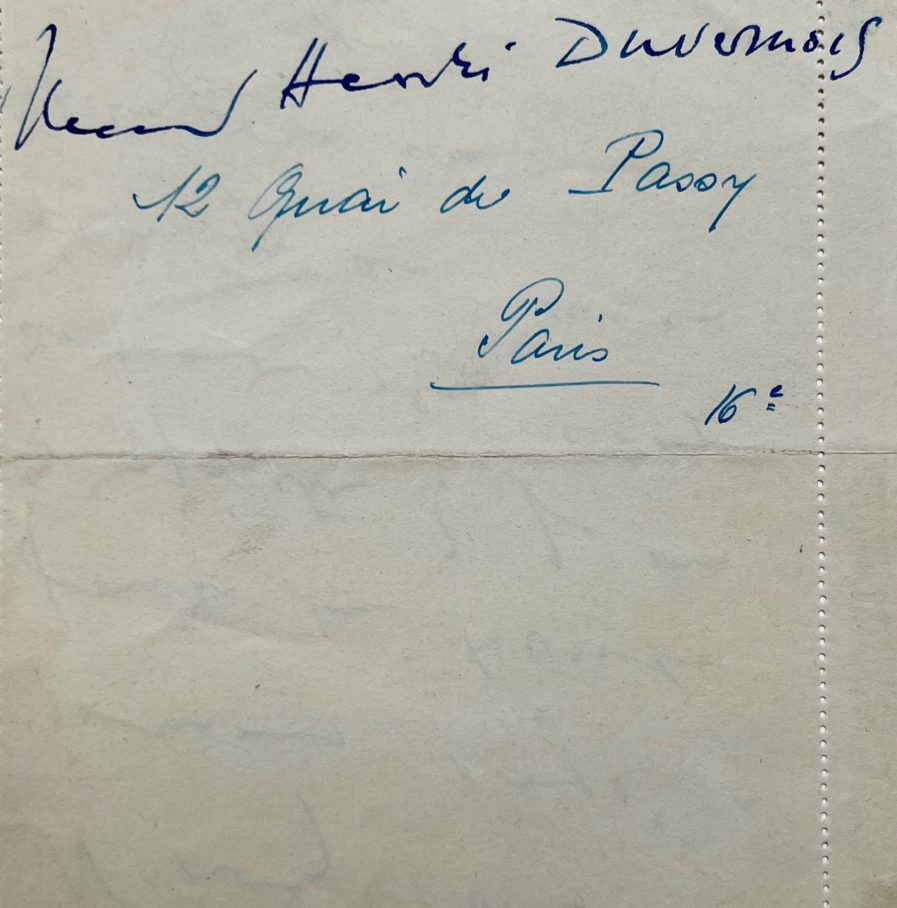 Henri Duvernois
12 Quai de Passy
Paris
16e